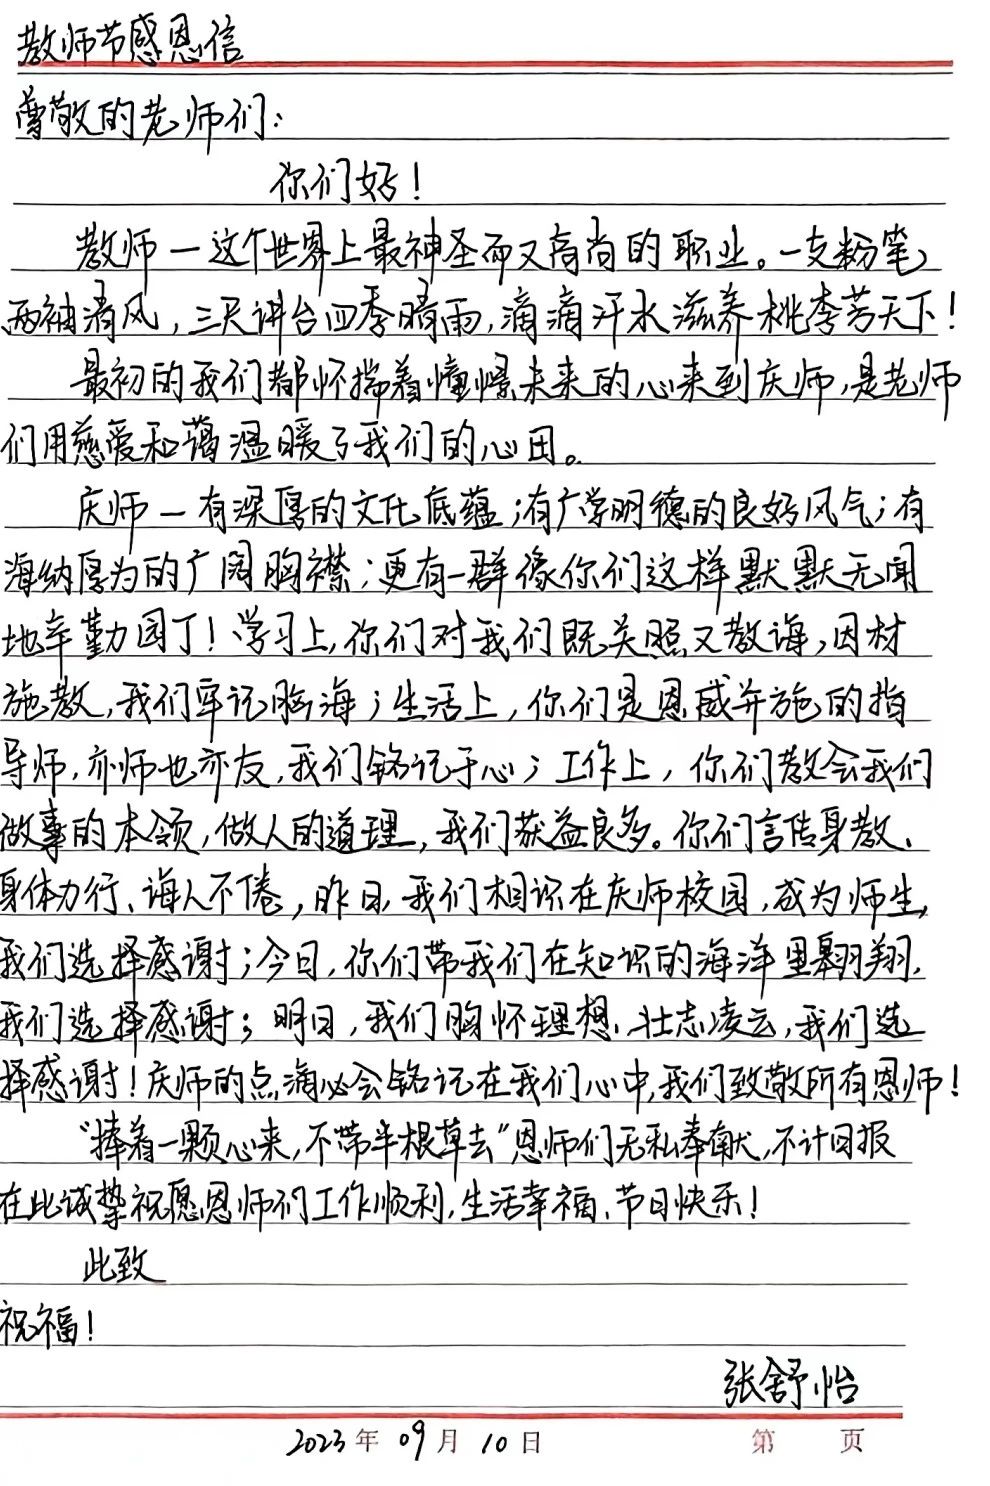 教师节感恩信
尊敬的老师们:
你们好!
教师一这个世界上最神圣而又高尚的职业。一支粉笔
两袖清风,三尺讲台四季晴雨,滴滴汗水滋养桃李芳天下!
最初的我们都怀揣着憧憬未来的心来到庆师,是老师
们用慈爱和蔼温暖了我们的心田。
庆师一有深厚的文化底蕴;有广学明德的良好风气;有
海纳厚为的广阔胸襟;更有一群像你们这样默默无闻
地辛勤园丁!学习上,你们对我们既关照又教诲,因材
施教,我们牢记脑海;生活上,你们是恩威并施的指
导师,亦师也亦友,我们铭记于心;工作上,你们教会我们
做事的本领,做人的道理,我们获益良多。你们言传身教、
身体力行、诲人不倦,昨日,我们相识在庆师校园,成为师生,
我们选择感谢;今日,你们带我们在知识的海洋里翱翔,
我们选择感谢;明日,我们胸怀理想、壮志凌云,我们选
择感谢!庆师的点滴必会铭记在我们心中,我们致敬所有恩师!
“捧着一颗心来,不带半根草去”恩师们无私奉献,不计回报
在此诚挚祝愿恩师们工作顺利,生活幸福、节日快乐!
此致
祝福!
张舒怡
2023年09月10日 第 页